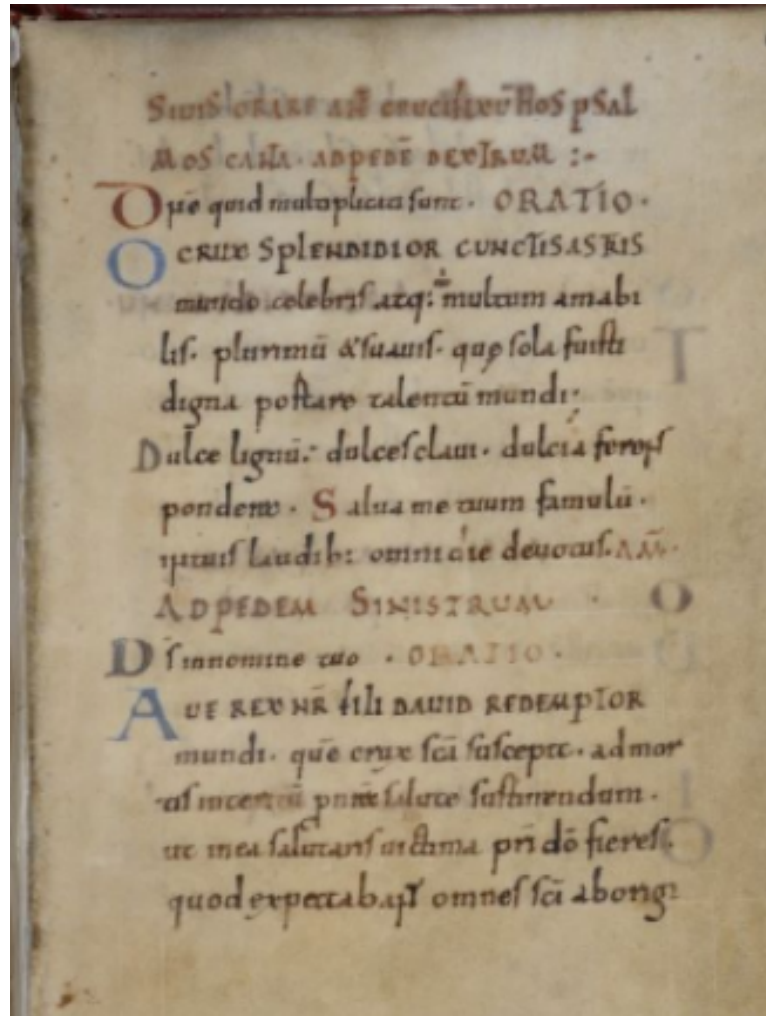 SIUIS ORARE ANT̄ CRUCIFIXŪ HOS PSAL
MOS CANTA · AD PEDĒ DEXTRUM :-
Dn̄e quid multiplicati sunt · ORATIO ·
O CRUX SPLENDIDIOR CUNCTIS ASTRIS
mundo celebris. atq; multum amabi
lis. plurimū & suauis. quę sola fuisti
digna portare talentū mundi;
Dulce lignū. dulces clauı. dulcia ferens
pondera. Salua me tuum famulū.
laudib; omni die deuotus. AM̄.
AD PEDEM SINISTRUM
Ds̄ in nomine tuo. ORATIO.
AUE REX NR̄ fili DAUID REDEMPTOR
mundi. quē crux sc̄a suscepit. ad mor
salute sustinendam.
ut mea salutaris uictima pri dō fieres.
quod expectabant omnes sc̄i ab origi